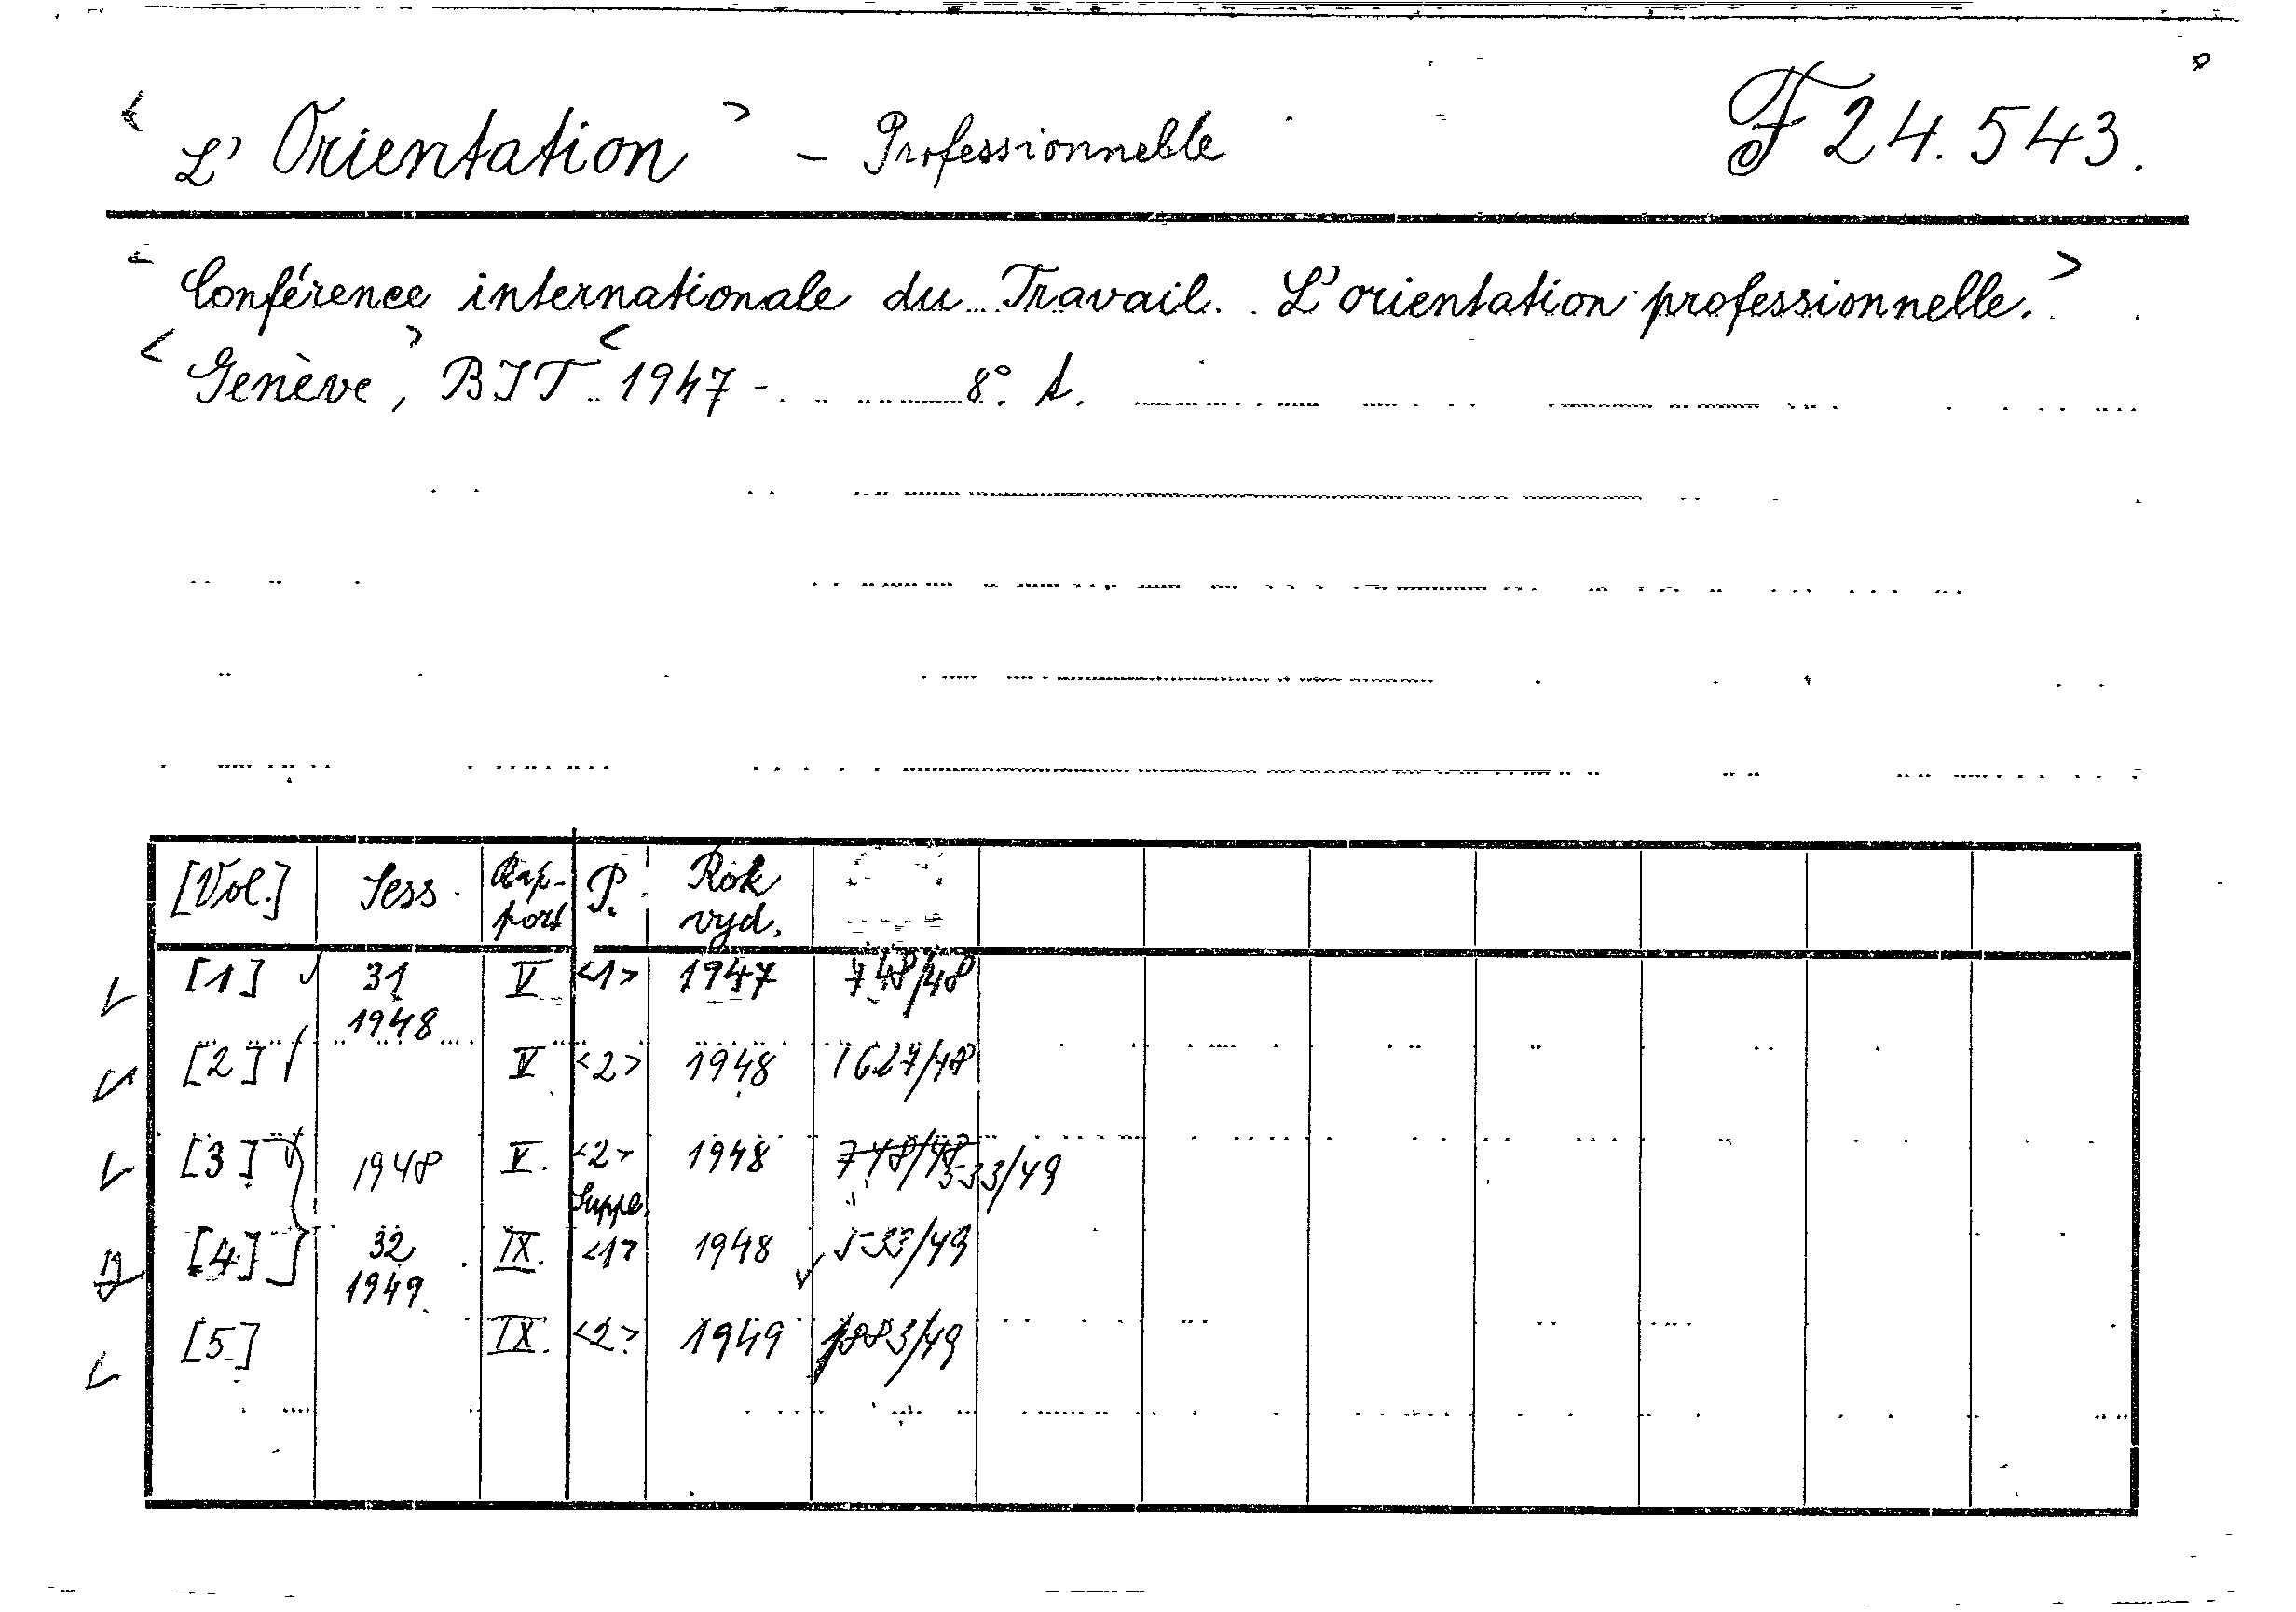 < L' Orientation > – Professionnelle F 24.543.
< Conférence internationale du Travail. L'orientation professionnelle. >
< Genève >, BIT < 1947 - 8°. A.
[Vol.] Sess. Rap-port P. Rok vyd.
[1] 31 1948 V <1> 1947 748/48
[2] V <2> 1948 1627/48
[3] 1948 V. <2> Supple. 1948 748/48 533/49
[4] 32 1949. IX. <1> 1948 533/49
[5] IX. <2> 1949 1883/49